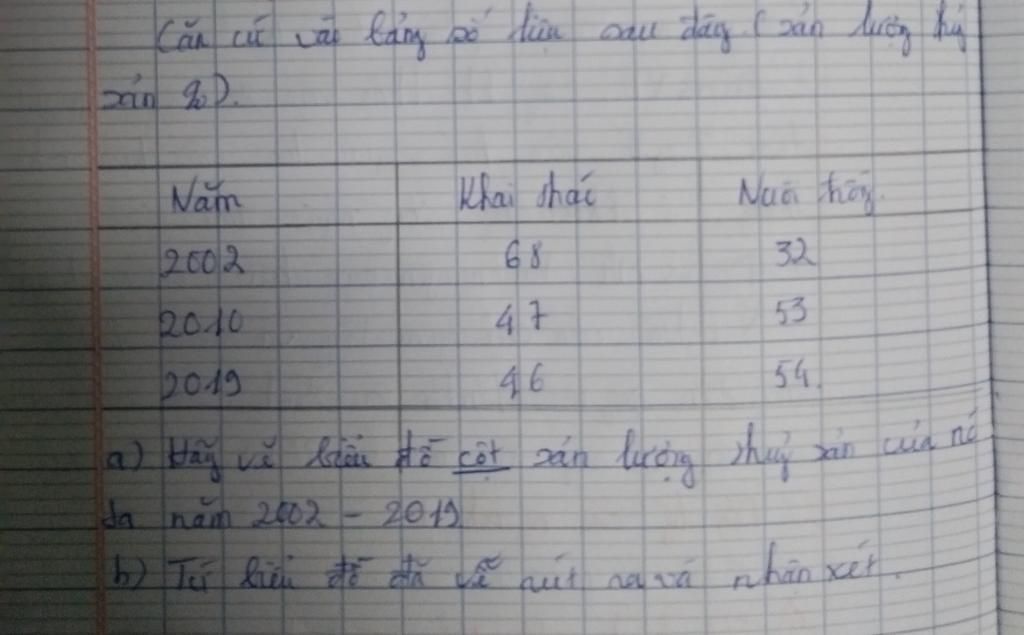 Căn cứ vào bảng số liệu sau đây (sản lượng thủy
sản %).
Năm Khai thác Nuôi trồng
2002 68 32
2010 47 53
2019 46 54
a) Hãy vẽ biểu đồ cột sản lượng thuỷ sản của nc
ta năm 2002 - 2019
b) Từ biểu đồ đã vẽ rút ra và nhận xét.